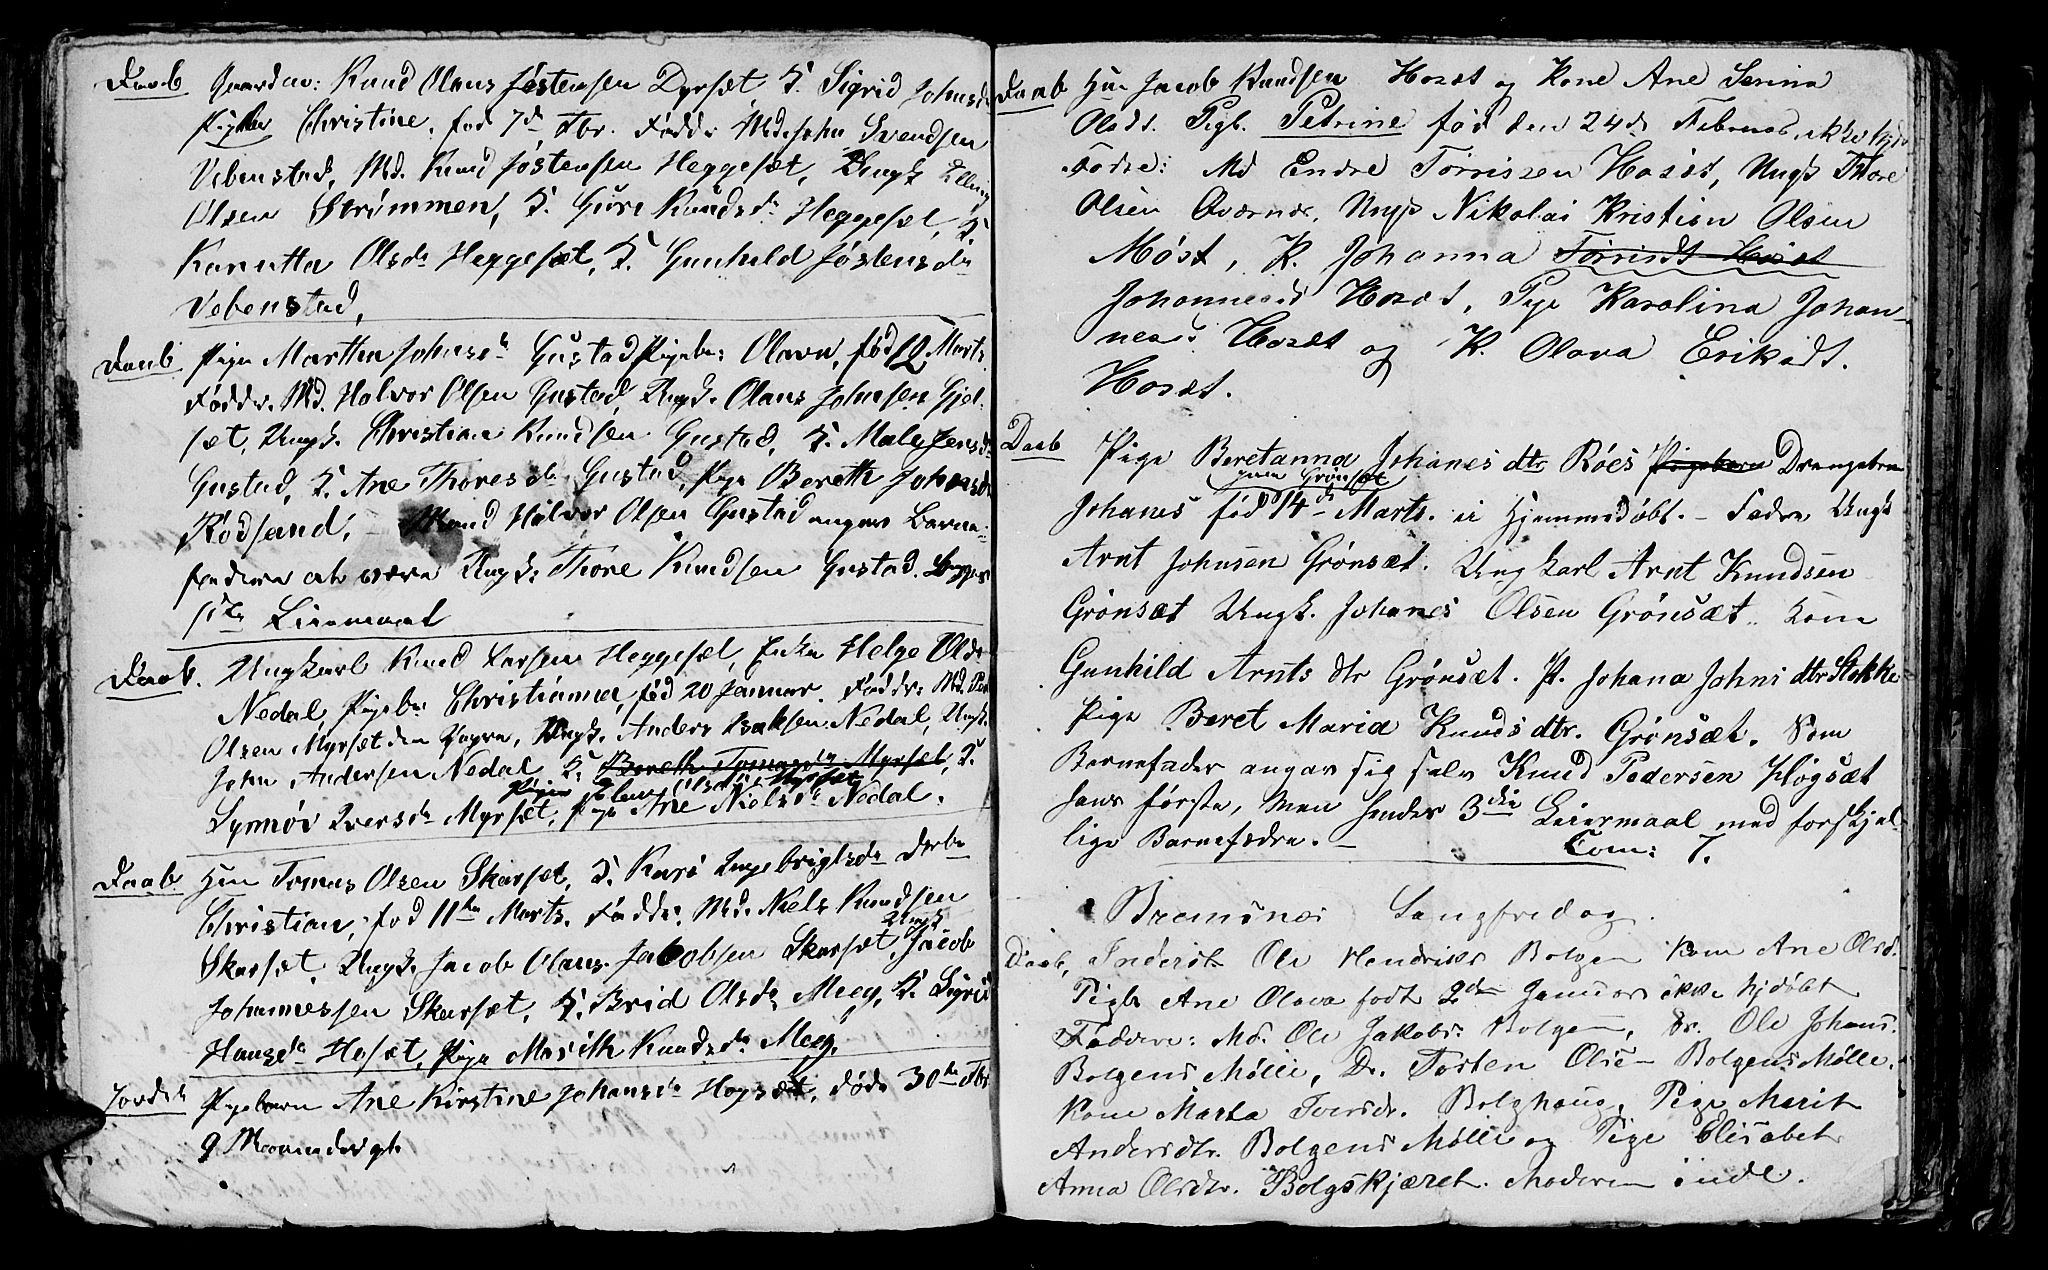 Daab Gaardm: Knud Olaus Jöstensen Dyrsæt K. Sigrid Johnsd
Pigebr Christine, fød 7de Fbr. Faddr: Md. John Svendsen
Vebenstad, Md. Knud Jöstensen Heggesæt, Ungk Elling
Olsen Strömmen, K. Guri Knudsdr Heggesæt, K.
Karutta Olsdr Heggesæt, K. Gunhild Jöstensdr
Vebenstad,
Daab Pige Martha Johnsdr Gustad Pigebr: Olava, fød 12 Marts
Faddr. Md. Halvor Olsen Gustad, Ungk. Olaus Johnsen Gjel-
sæt, Ungk. Christian Knudsen Gustad, K. Mali Jensdr
Gustad, K. Ane Thoresdr Gustad, Pige Bereth Johnsdr
Rödsand, – Mand Halvor Olsen Gustad angav Barne-
faderen at være Ungk. Thore Knudsen Gustad. Begges
1ste Leiermaal
Daab. Ungkarl Knud Larsen Heggesæt, Enke Helge Olsdr
Nedal, Pigebr Christianna, fød 20 Januar. Faddr: Md. Peder
Olsen Myrsæt den Yngre, Ungk. Anders Isaksen Nedal, Ungk.
John Andersen Nedal, K. Bereth Tomasdr Myrsæt, K.
Pigen Elen Olsdr Myrsæt
Synnöv Iversdr Myrsæt, Pige Ane Nielsdr Nedal.
Daab Hm Tomas Olsen Skarsæt, K. Kari Ingebrigtsdr Drbr
Christian, fød 11te Marts. Faddr: Md. Niels Knudsen
Skarsæt, Ungk. Jacob Olaus Jacobsen Skarsæt, Ungk Jacob
Johannessen Skarsæt, K. Brid Olsdr Meeg, K. Sigrid
Hansdr Hosæt, Pige Marith Knudsdr Meeg.
Jordk Pigebarn Ane Kirstine Johansdr Hogsæt, død 30te Fbr
9 Maaneder gl.
Daab Hm Jacob Knudsen Hosæt og Kone Ane Serina
Olsdt. Pigb. Petrine fød den 24de Februar, ikke hjd
Fadre: Md Endre Törrissen Hosæt, Ungk Thore
Olsen Qværnes, Ungk Nikolai Kristian Olsen
Møst, K. Johanna Törrisdt Hosæt
Johannesd Hosæt, Pige Karolina Johan-
nesd Hosæt og K. Olava Eriksdt.
Hosæt.
Daab Pige Beretanna Johanes dtr Röes Pigebarn Drengebrn
paa Grönsæt
Johanes fød 14de Marts. ei Hjemmedöbt. – Fadre Ungk
Arnt Johnsen Grönsæt. Ungkarl Arnt Knudsen
Grönsæt Ungk. Johanes Olsen Grönsæt. Kone
Gunhild Arnts dtr Grönsæt. P. Johana Johns dtr Stokke
Pige Beret Maria Knuds dtr. Grönsæt. Som
Barnefader angav sig selv Knud Pedersen Högsæt
hans förste, men hendes 3die Leiermaal med forskjel-
lige Barnefædre. –
Com: 7.
Bremsnes Langfredag.
Daab, Inderst Ole Henriks Bolgen Kone Ane Olsd.
Pigb Ane Olava født 2den Januar ikke hjdöbt
Faddere: Md. Ole Jakobs. Bolgen, Dr. Ole Johans.
Bolgens Mölle, Dr. Torsten Olsen Bolgens Mölle.
Kone Marta Iversdr. Bolghaug, Pige Marit
Andersdtr. Bolgens Mölle og Pige Elisabet
Anna Olsdtr. Bolgskjæret. Moderen indl.